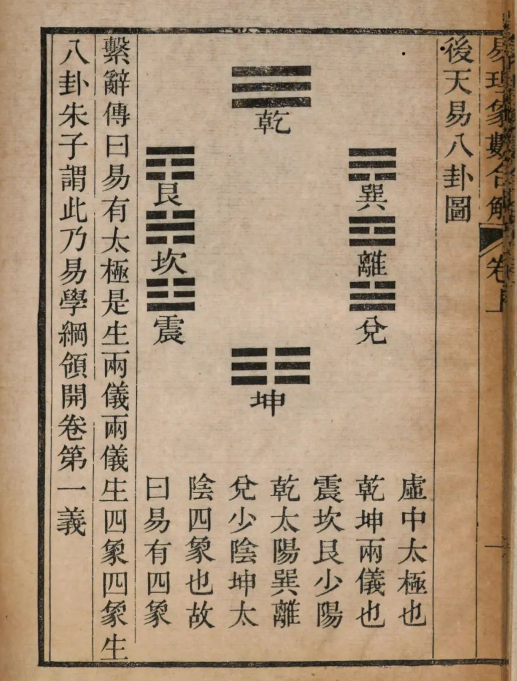 易理象數合解
卷上
一
後天易八卦圖
乾
巽
離
兌
艮
坎
震
坤
虛中太極也
乾坤兩儀也
震坎艮少陽
乾太陽巽離
兌少陰坤太
陰四象也故
曰易有四象
繫辭傳曰易有太極是生兩儀兩儀生四象四象生
八卦朱子謂此乃易學綱領開卷第一義